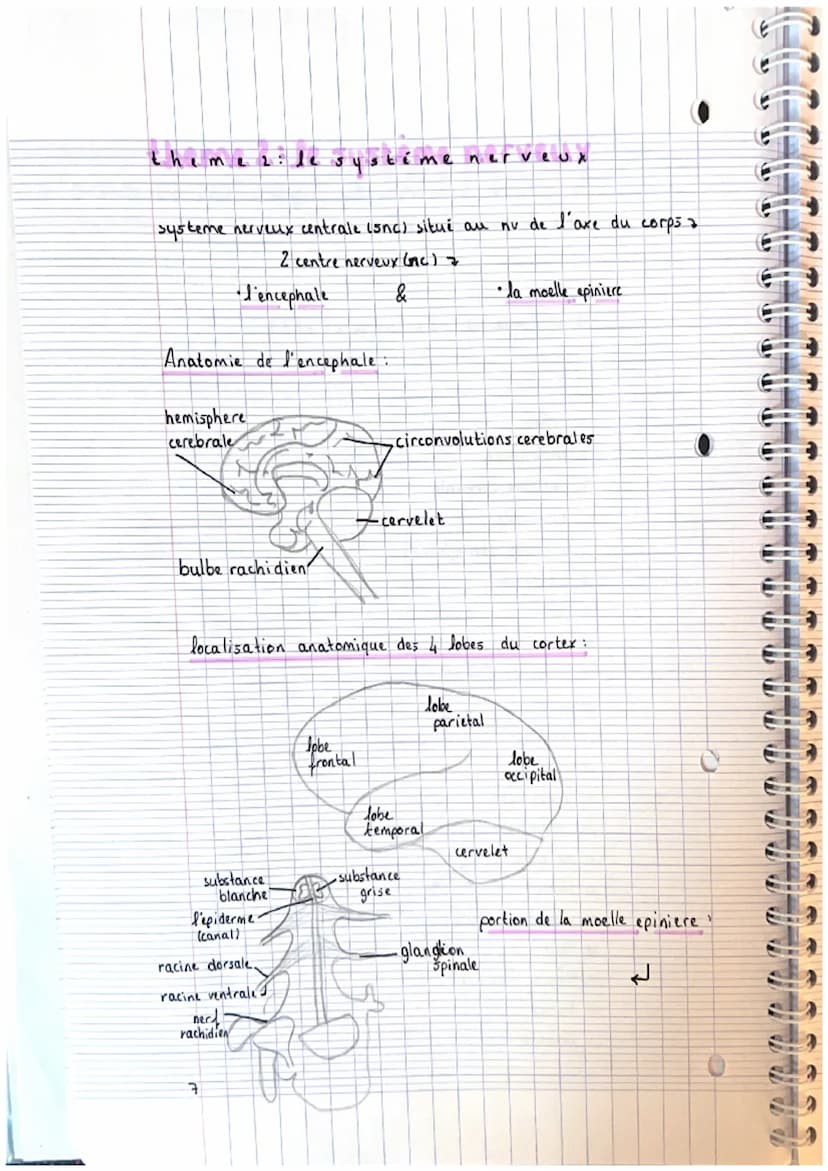 theme 2: le système nerveux
systeme nerveux centrale (snc) situi au nv de l'axe du corps →
2 centre nerveux (nc) →
• l'encephale & • la moelle epiniere
Anatomie de l'encephale :
hemisphere
cerebrale
circonvolutions cerebrales
cervelet
bulbe rachidien
localisation anatomique des 4 lobes du cortex :
lobe
parietal
lobe
frontal
lobe
occipital
lobe
temporal
cervelet
substance
blanche
substance
grise
l'epiderme
(canal)
portion de la moelle epiniere :
glanglion
spinale
racine dorsale
racine ventrale
nerf
rachidien